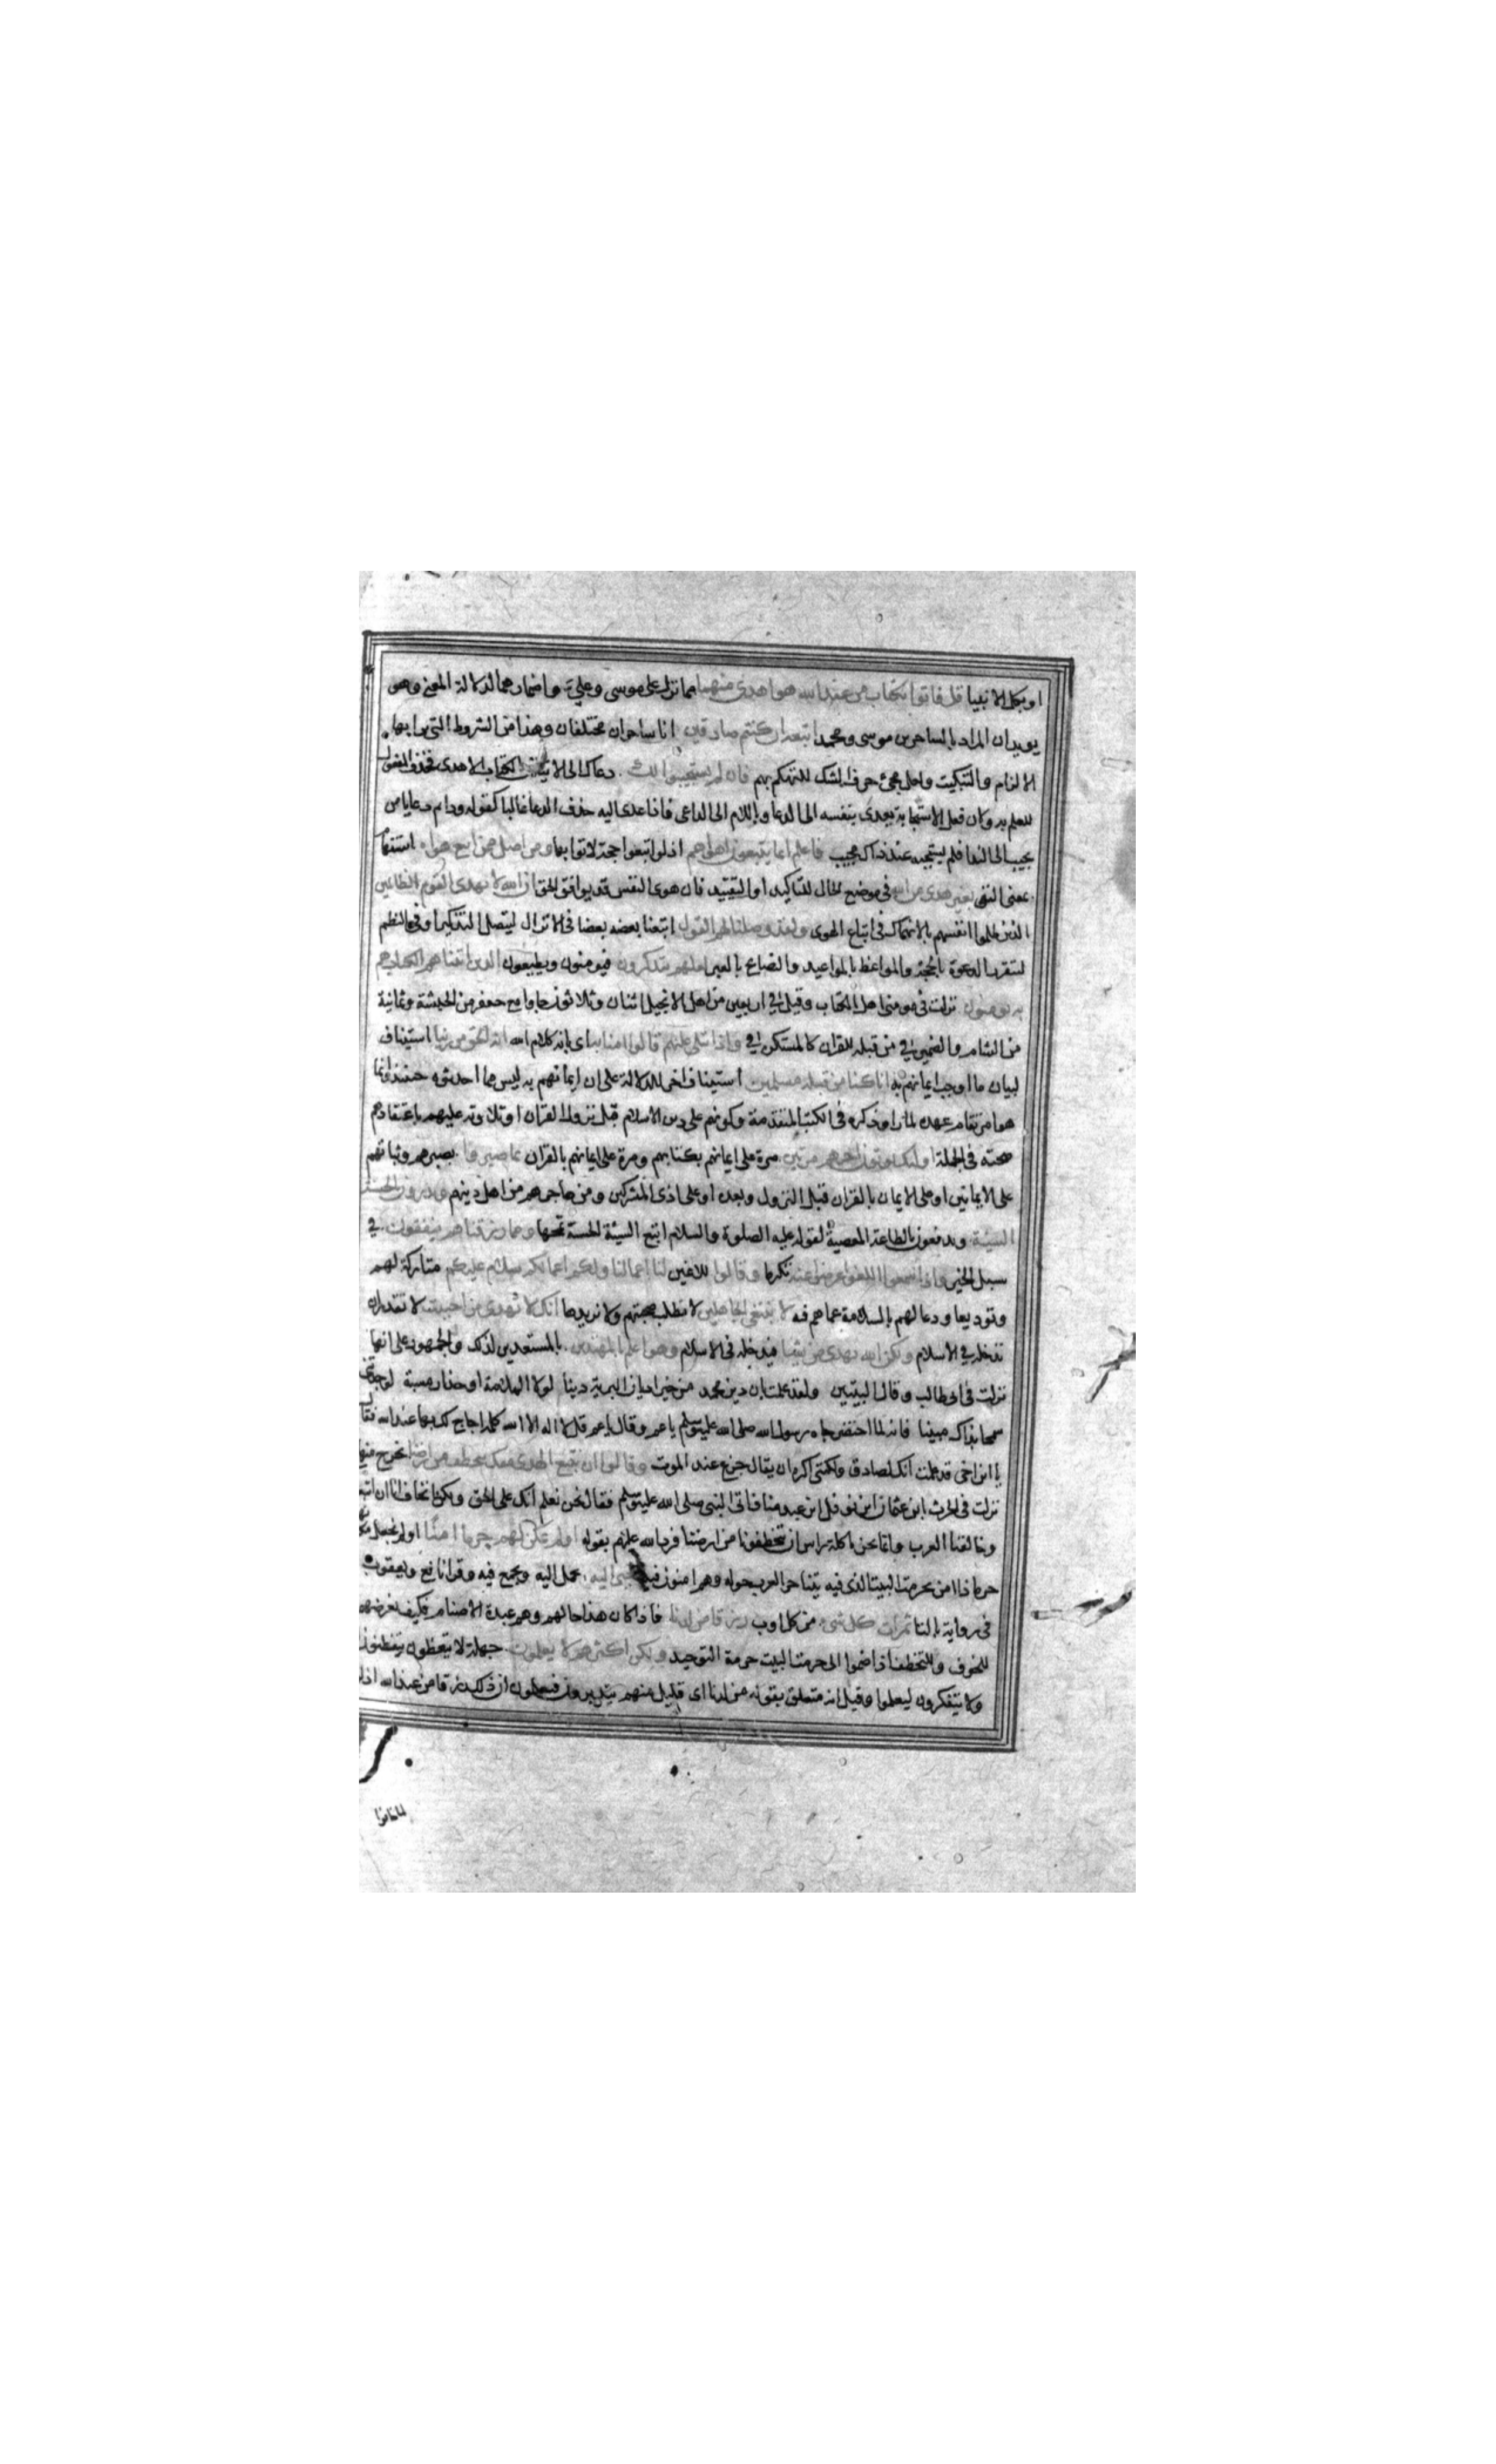 او بكل الانبيا قل فاتوا بكتاب من عند الله هو اهدى منهما مما نزل على موسى وعلي واضمارهما لدلالة المعنى وهو
يويد ان المراد بالساحرين موسى ومحمد اتبعه ان كنتم صادقين انا ساحران مختلفان وهذا من الشروط التي يراد بها
الالزام والتبكيت ولعل مجئ حرف الشك للتهكم بهم فان لم يستجيبوا لك دعاك الى الاتيان بالكتاب الاهدى فحذف المفعول
للعلم به ولان فعل الاستجابة يعدى بنفسه الى الدعا وباللام الى الداعي فاذا عدي اليه حذف الدعا غالبا كقوله وداع دعا يا من
يجيب الى الندا فلم يستجبه عند ذاك مجيب فاعلم انما يتبعون اهواهم اذ لو اتبعوا حجة لاتوا بها ومن اضل ممن اتبع هواه استفهام
بمعنى النفي بغير هدى من الله في موضع الحال للتاكيد او التقييد فان هوى النفس قد يوافق الحق ان الله لا يهدي القوم الظالمين
الذين ظلموا انفسهم بالانهماك في اتباع الهوى ولقد وصلنا لهم القول اتبعنا بعضه بعضا في الانزال ليتصل التذكير او في النظم
لتتقرر الدعوة بالحجة والمواعظ بالمواعيد والنصايح بالعبر لعلهم يتذكرون فيومنون ويطيعون الذين اتيناهم الكتاب هم
به يومنون نزلت في مومني اهل الكتاب وقيل في اربعين من اهل الانجيل اثنان وثلاثون جاوا مع جعفر من الحبشة وثمانية
من الشام والضمير في من قبله للقران كالمستكن في واذا يتلى عليهم قالوا امنا به اي بانه كلام الله انه الحق من ربنا استيناف
لبيان ما اوجب ايمانهم به انا كنا من قبله مسلمين استيناف اخر للدلالة على ان ايمانهم به ليس مما احدثوه حينئذ وانما
هو امر تقادم عهده لما راوا ذكره في الكتب المتقدمة وكونهم على دين الاسلام قبل نزول القران او تلاوته عليهم باعتقادهم
صحته في الجملة اولئك يوتون اجرهم مرتين مرة على ايمانهم بكتابهم ومرة على ايمانهم بالقران بما صبروا بصبرهم وثباتهم
على الايمانين او على الايمان بالقران قبل النزول وبعده او على اذى المشركين ومن هاجرهم من اهل دينهم ويدرون بالحسنة
السيئة ويدفعون بالطاعة المعصية لقوله عليه الصلوة والسلام اتبع السيئة الحسنة تمحها ومما رزقناهم ينفقون في
سبيل الخير واذا سمعوا اللغو اعرضوا عنه تكرما وقالوا للاغين لنا اعمالنا ولكم اعمالكم سلام عليكم متاركة لهم
وتوديعا ودعا لهم بالسلامة عما هم فيه لا نبتغي الجاهلين لا نطلب صحبتهم ولا نريدها انك لا تهدي من احببت لا تقدر ان
تدخله في الاسلام ولكن الله يهدي من يشا فيدخله في الاسلام وهو اعلم بالمهتدين بالمستعدين لذلك والجمهور على انها
نزلت في ابي طالب وقال البيتين ولقد علمت بان دين محمد من خير اديان البرية دينا لولا الملامة او حذار مسبة لوجدتني
سمحا بذاك مبينا فانه لما احتضر جاه رسول الله صلى الله عليه وسلم يا عم وقال يا عم قل لا اله الا الله كلمة احاج لك بها عند الله فقال
يا ابن اخي قد علمت انك لصادق ولكني اكره ان يقال جزع عند الموت وقالوا ان نتبع الهدى معك نتخطف من ارضنا نخرج منها
نزلت في الحرث ابن عثمان ابن نوفل ابن عبد مناف اتى النبي صلى الله عليه وسلم فقال نحن نعلم انك على الحق ولكنا نخاف ان اتبعـ
وخالفنا العرب وانما نحن اكلة راس ان يتخطفونا من ارضنا فرد الله عليهم بقوله اولم نمكن لهم حرما امنا اولم نجعل
حرما ذا امن بحرمة البيت الذي فيه يتناحر العرب حوله وهم امنون فيه يجبى اليه يحمل اليه ويجمع فيه وقرا نافع ويعقوب
في رواية بالتا ثمرات كل شي من كل اوب رزقا من لدنا فاذا كان هذا حالهم وهم عبدة الاصنام فكيف نعرضهم
للخوف والتخطف اذا ضموا الى حرمة البيت حرمة التوحيد ولكن اكثرهم لا يعلمون جهلة لا يتعظون يتفطنون
ولا يتفكرون ليعلموا وقيل انه متعلق بقوله من لدنا اي قليل منهم يتدبرون فيعلمون ان ذلك رزقا من عند الله اذ